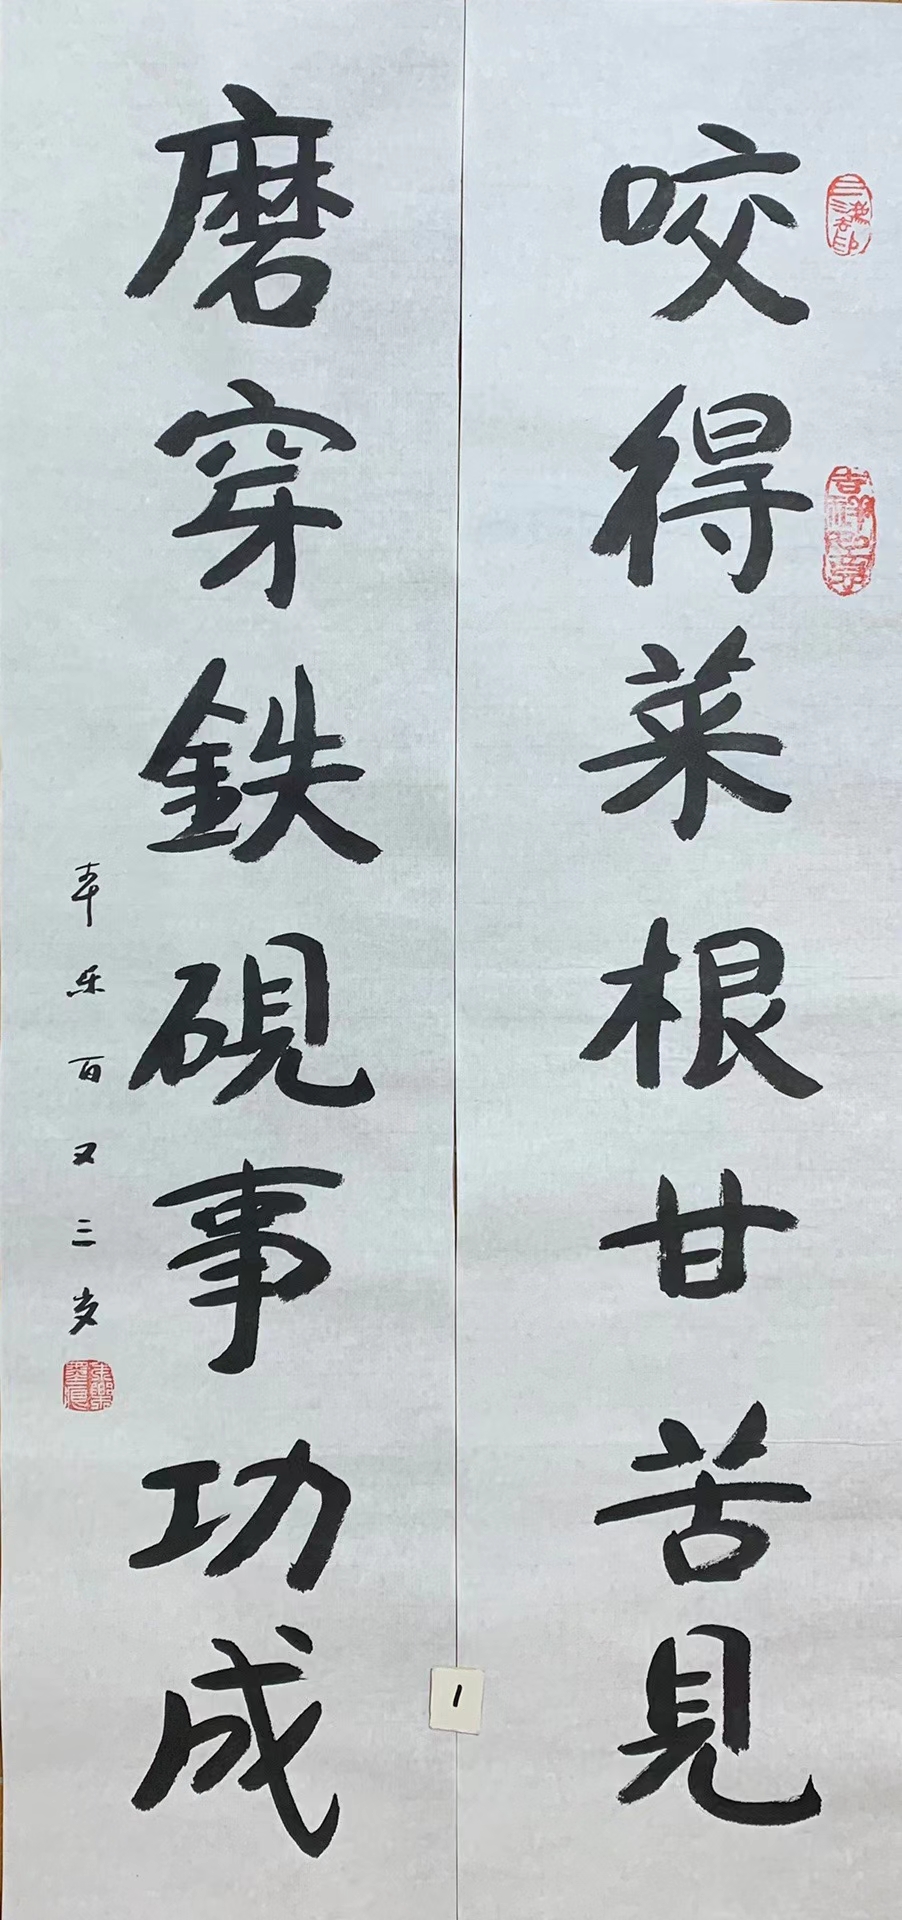 咬得菜根甘苦見
磨穿鉄硯事功成
夲乐百又三岁
1